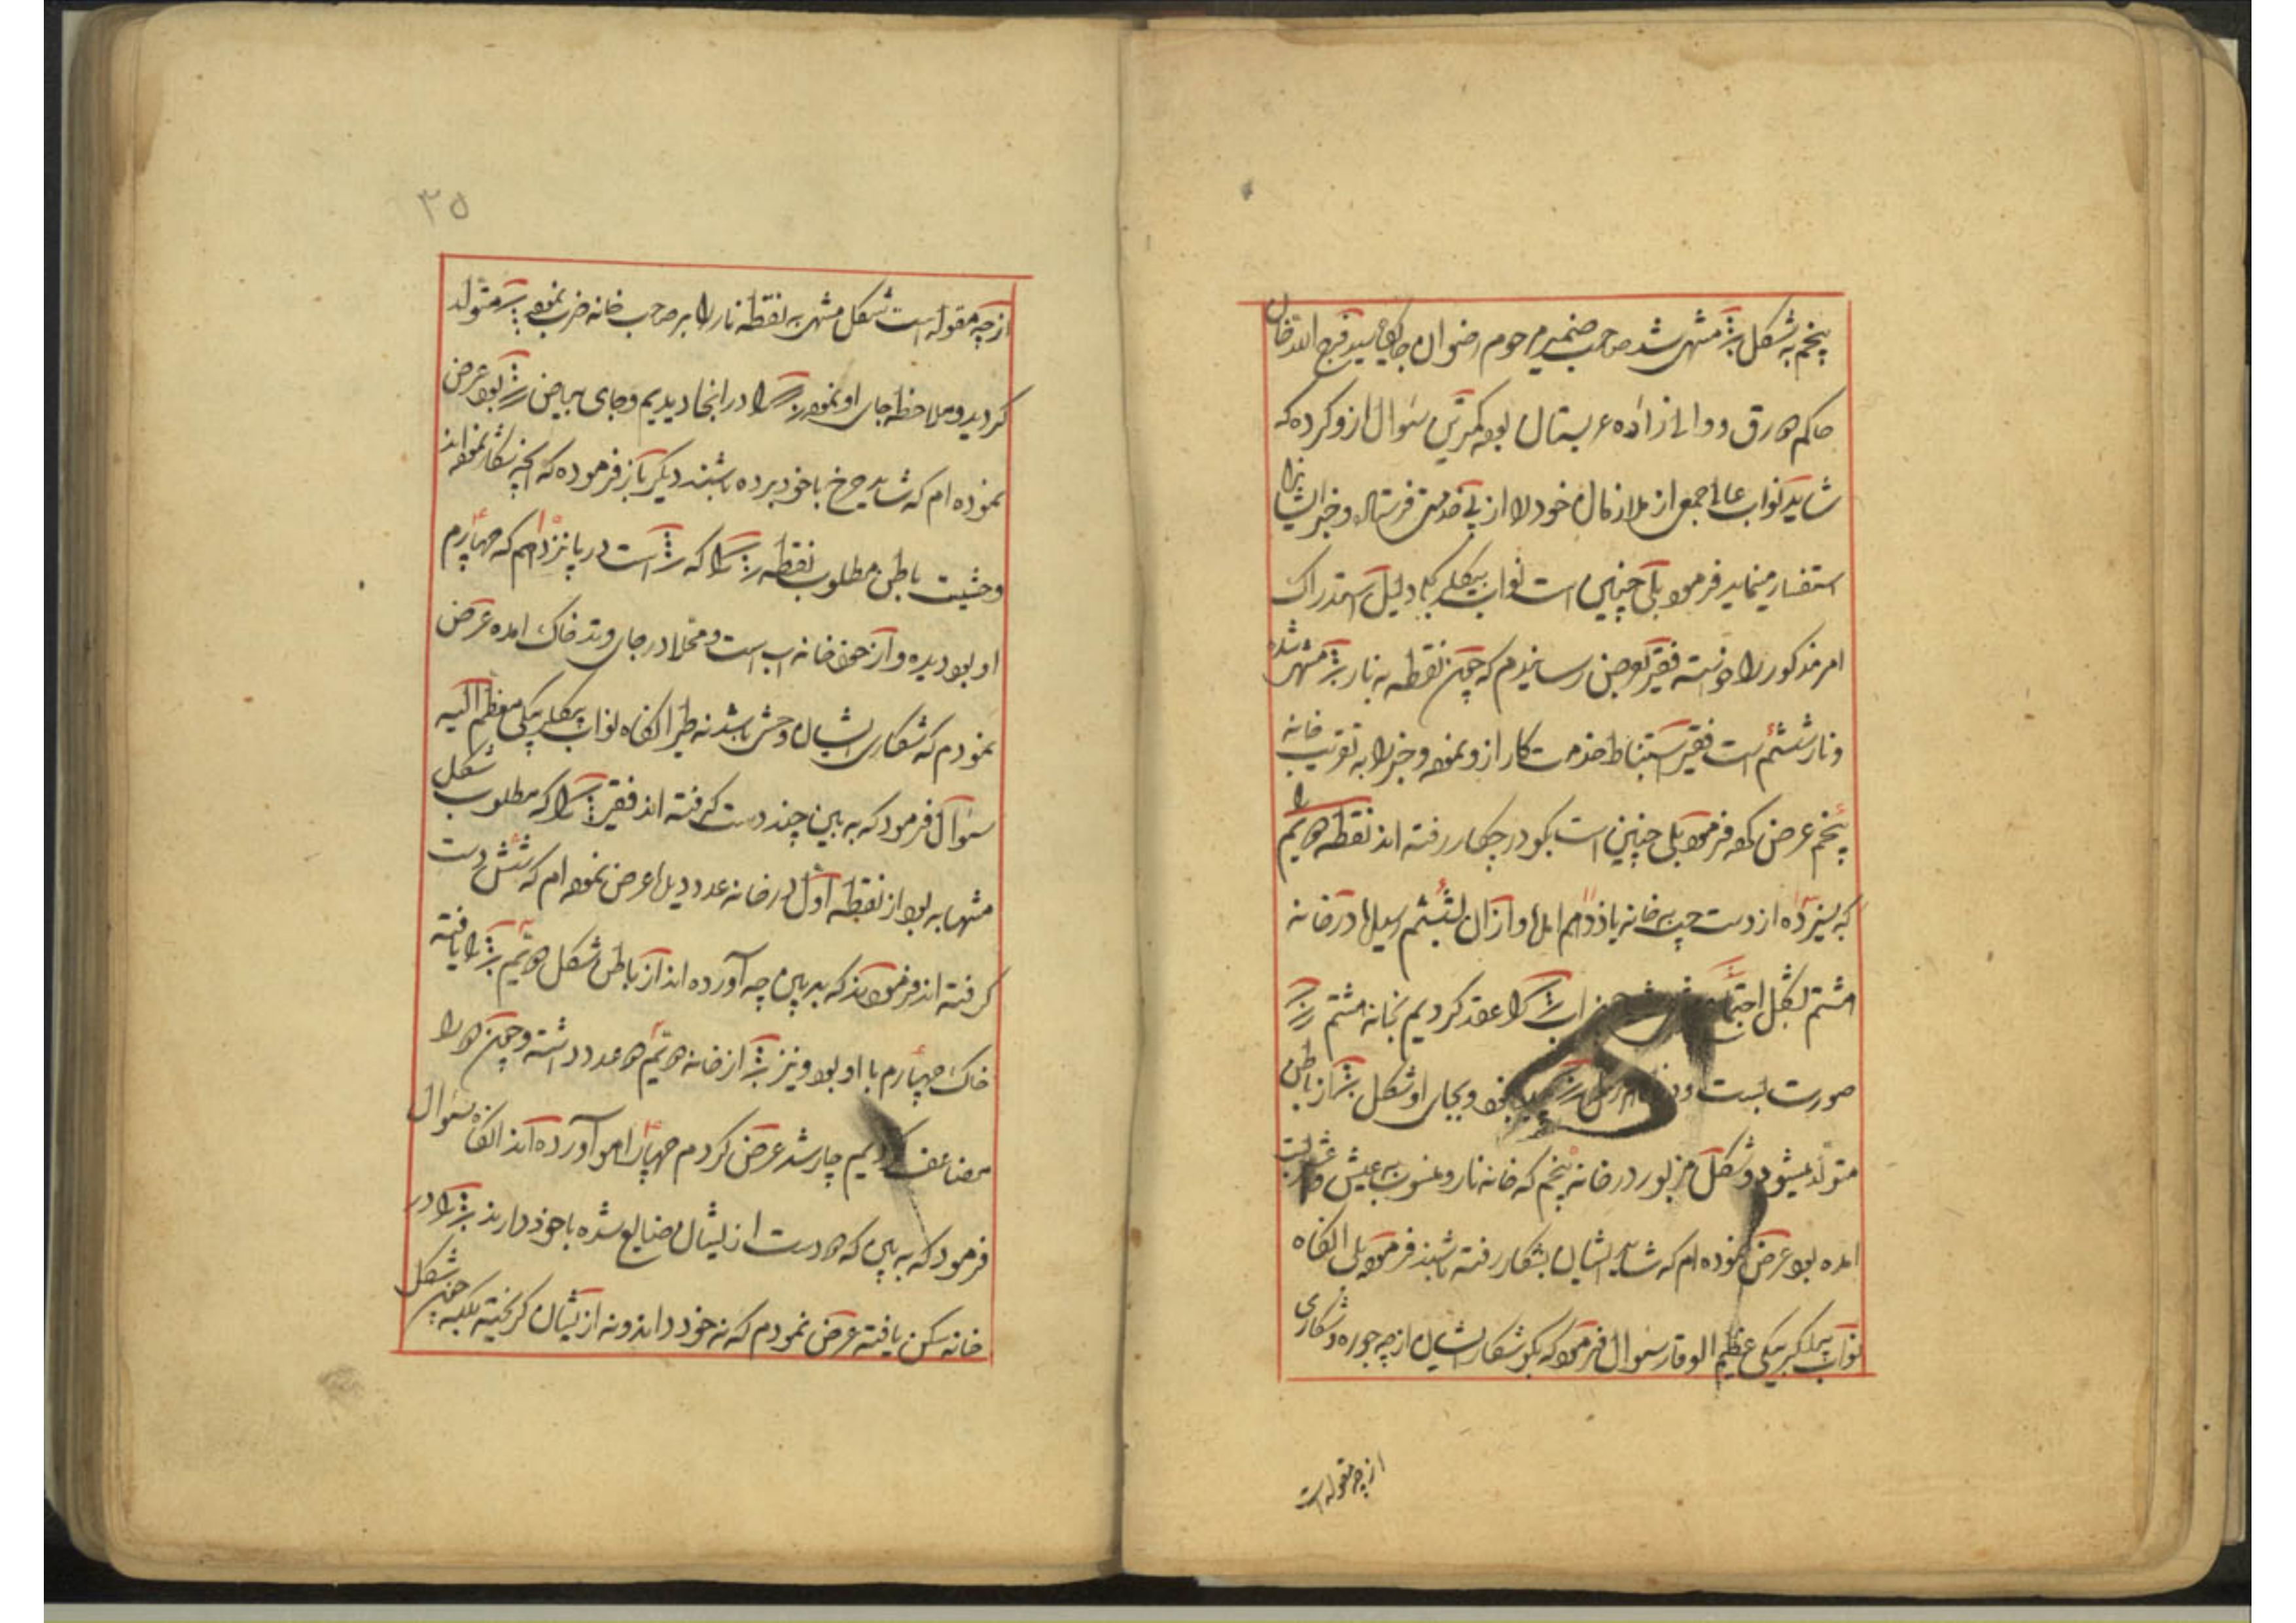 پنجم به شکل مشهر شد صاحب ضمیر مرحوم رضوان جایگاهی سید فرج الله خان
حاکم دورق و والی زاده عربستان بود کمترین سؤال ازو کرده که
شاید نواب عالی جمعی از ملازمان خود را از پی خدمتی فرستاده و خبر ایشانرا
استفسار مینماید فرمود بلی چنین است نواب بیکلربیکی دلیل استدراک
امر مذکور را خواسته فقیر بعرض رسانیدم که چون نقطه به نار مشهر شده
و نار ششم است فقیر استنباط خدمت کار ازو نموده و خبر را به تقریب خانه
پنجم عرض کرده فرمود بلی چنین است بکو در چکار رفته اند نقطه دویم را
که سیزده از دست چپ به خانه یازدهم آمده و از آن بششم رسیده در خانه
هشتم بشکل اجتماع آب را عقد کردیم بخانه هشتم
صورت بست و در نموده و بجای او شکل از باطن
متولد میشود و شکل مزبور در خانه پنجم که خانه نار و منسوب به عیش و عشرتست
آمده بود عرض نموده ام که شاید ایشان بشکار رفته باشند فرمود بلی آنکاه
نواب بیکلربیکی عظیم الوقار سؤال فرمود که بکو شکار ایشان از چه جوره و شکاری
از چه مقوله است
۳۵
از چه مقوله است شکل مشهر به نقطه نار را بر صاحب خانه ضرب نموده متولد
کردید و ملاحظه جای او نموده را در انجا دیدیم و جای بیاض بود عرض
نموده ام که شاید چرخ با خود برده باشند دیکر باز فرموده که آنچه شکار نموده اند
وحشیت باطن مطلوب نقطه را که است در پانزدهم که چهارم
او بود دیده و از چون خانه آب است و محلا در جای وتد خاک آمده عرض
نمودم که شکاری ایشان وحش باشد نه طیر آنکاه نواب بیکلربیکی معظم الیه
سؤال فرمود که به بین چند دست کرفته اند فقیر را که مطلوب شکل
مشهابه بود از نقطه اول در خانه عدد دیده عرض نموده ام که شش دست
کرفته اند فرمودند که به بین چه آورده اند از باطن شکل دویم را یافته
خاک چهارم با او بود و نیز از خانه دویم دو عدد داشته و چون دو را
مضاعف کردیم چار شد عرض کردم چهار آهو آورده اند آنکاه سؤال
فرمود که به بین که دو دست از ایشان ضایع شده با خود دارند را در
خانه سکن یافته عرض نمودم که نه خود دارند و نه از ایشان کریخته بلکه چون شکل